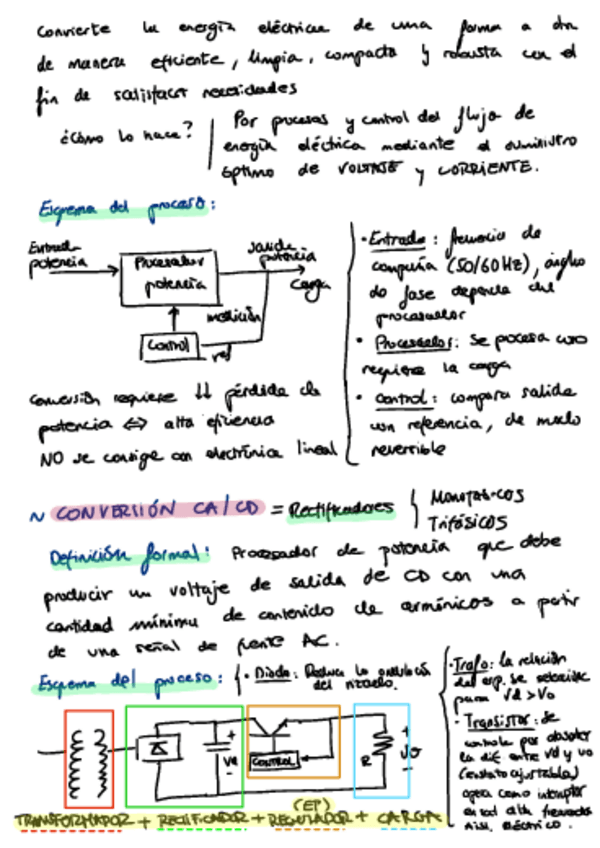 Convierte la energía eléctrica de una forma a otra
de manera eficiente, limpia, compacta y robusta con el
fin de satisfacer necesidades
¿Cómo lo hace?
Por procesos y control del flujo de
energía eléctrica mediante el suministro
óptimo de VOLTAJE y CORRIENTE.
Esquema del proceso:
Entrada
potencia
Procesador
potencia
salida
potencia
carga
medición
Control
ref
• Entrada: frecuencia de
compañía (50/60 Hz), ángulo
de fase depende del
procesador
• Procesador: se procesa como
requiere la carga
• Control: compara salida
con referencia, de modo
reversible
Conversión requiere ↓↓ pérdida de
potencia ⇔ alta eficiencia
NO se consige con electrónica lineal
~ CONVERSIÓN CA/CD = Rectificadores
Monofásicos
Trifásicos
Definición formal: Procesador de potencia que debe
producir un voltaje de salida de CD con una
cantidad mínima de contenido de armónicos a partir
de una señal de fuente AC.
Esquema del proceso:
• Diodo: Reduce la ondulación
del rizado.
• Trafo: la relación
del esp. se selecciona
para Vd > Vo
• Transistor: Se
controla por absorber
la dif. entre Vd y Vo
(estado ajustable)
+
Vd
-
CONTROL
R
+
Vo
-
(EP)
TRANSFORMADOR + RECTIFICADOR + REGULADOR + CARGA